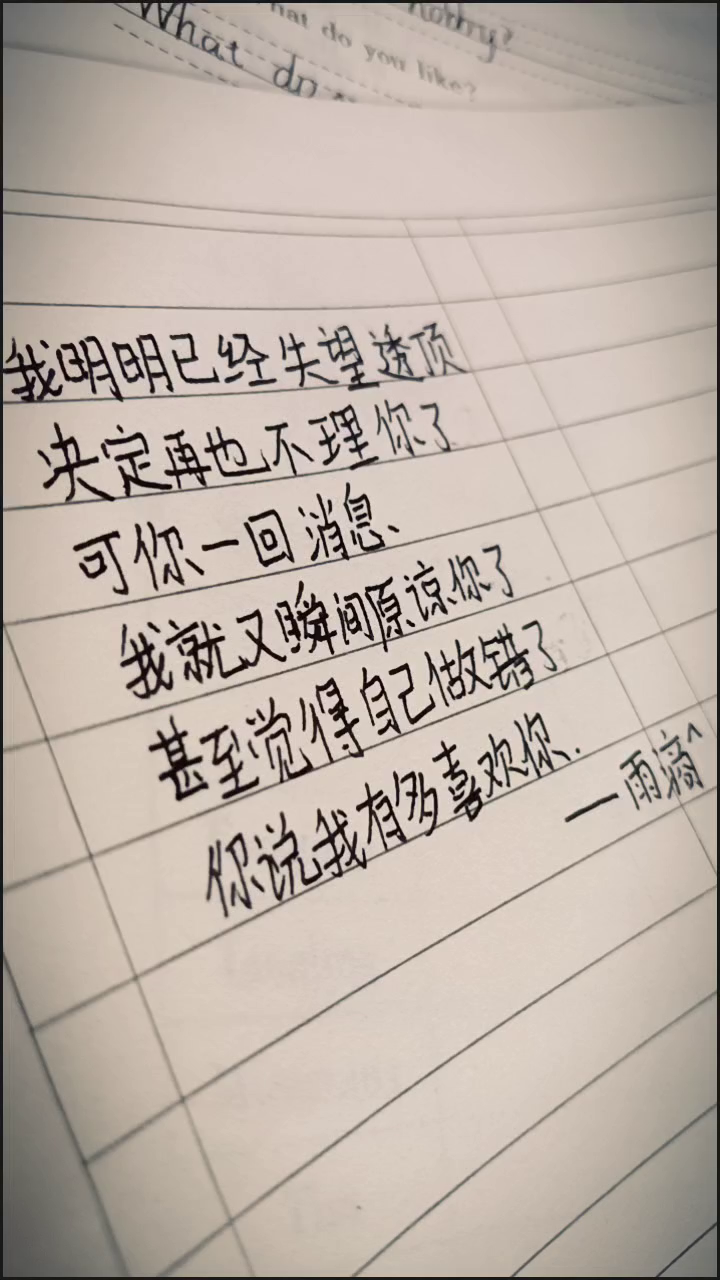 hobby?
What do you like?
What do
我明明已经失望透顶
决定再也不理你了
可你一回消息、
我就又瞬间原谅你了
甚至觉得自己做错了
你说我有多喜欢你.
——雨滴^